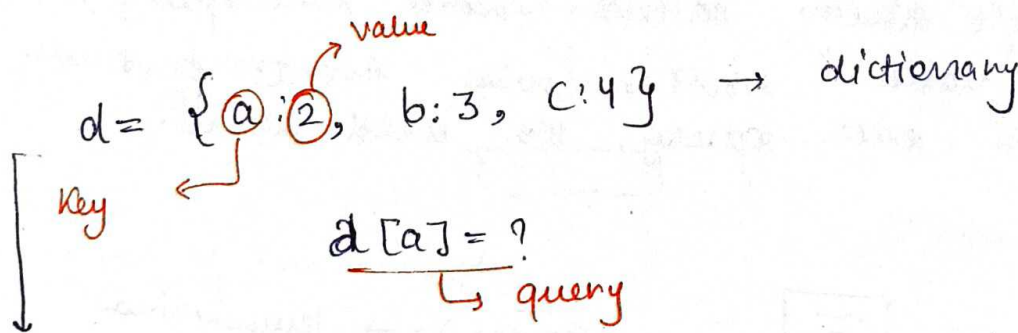 value
d = {a : 2, b : 3, c : 4} → dictionary
Key
d [a] = ?
query